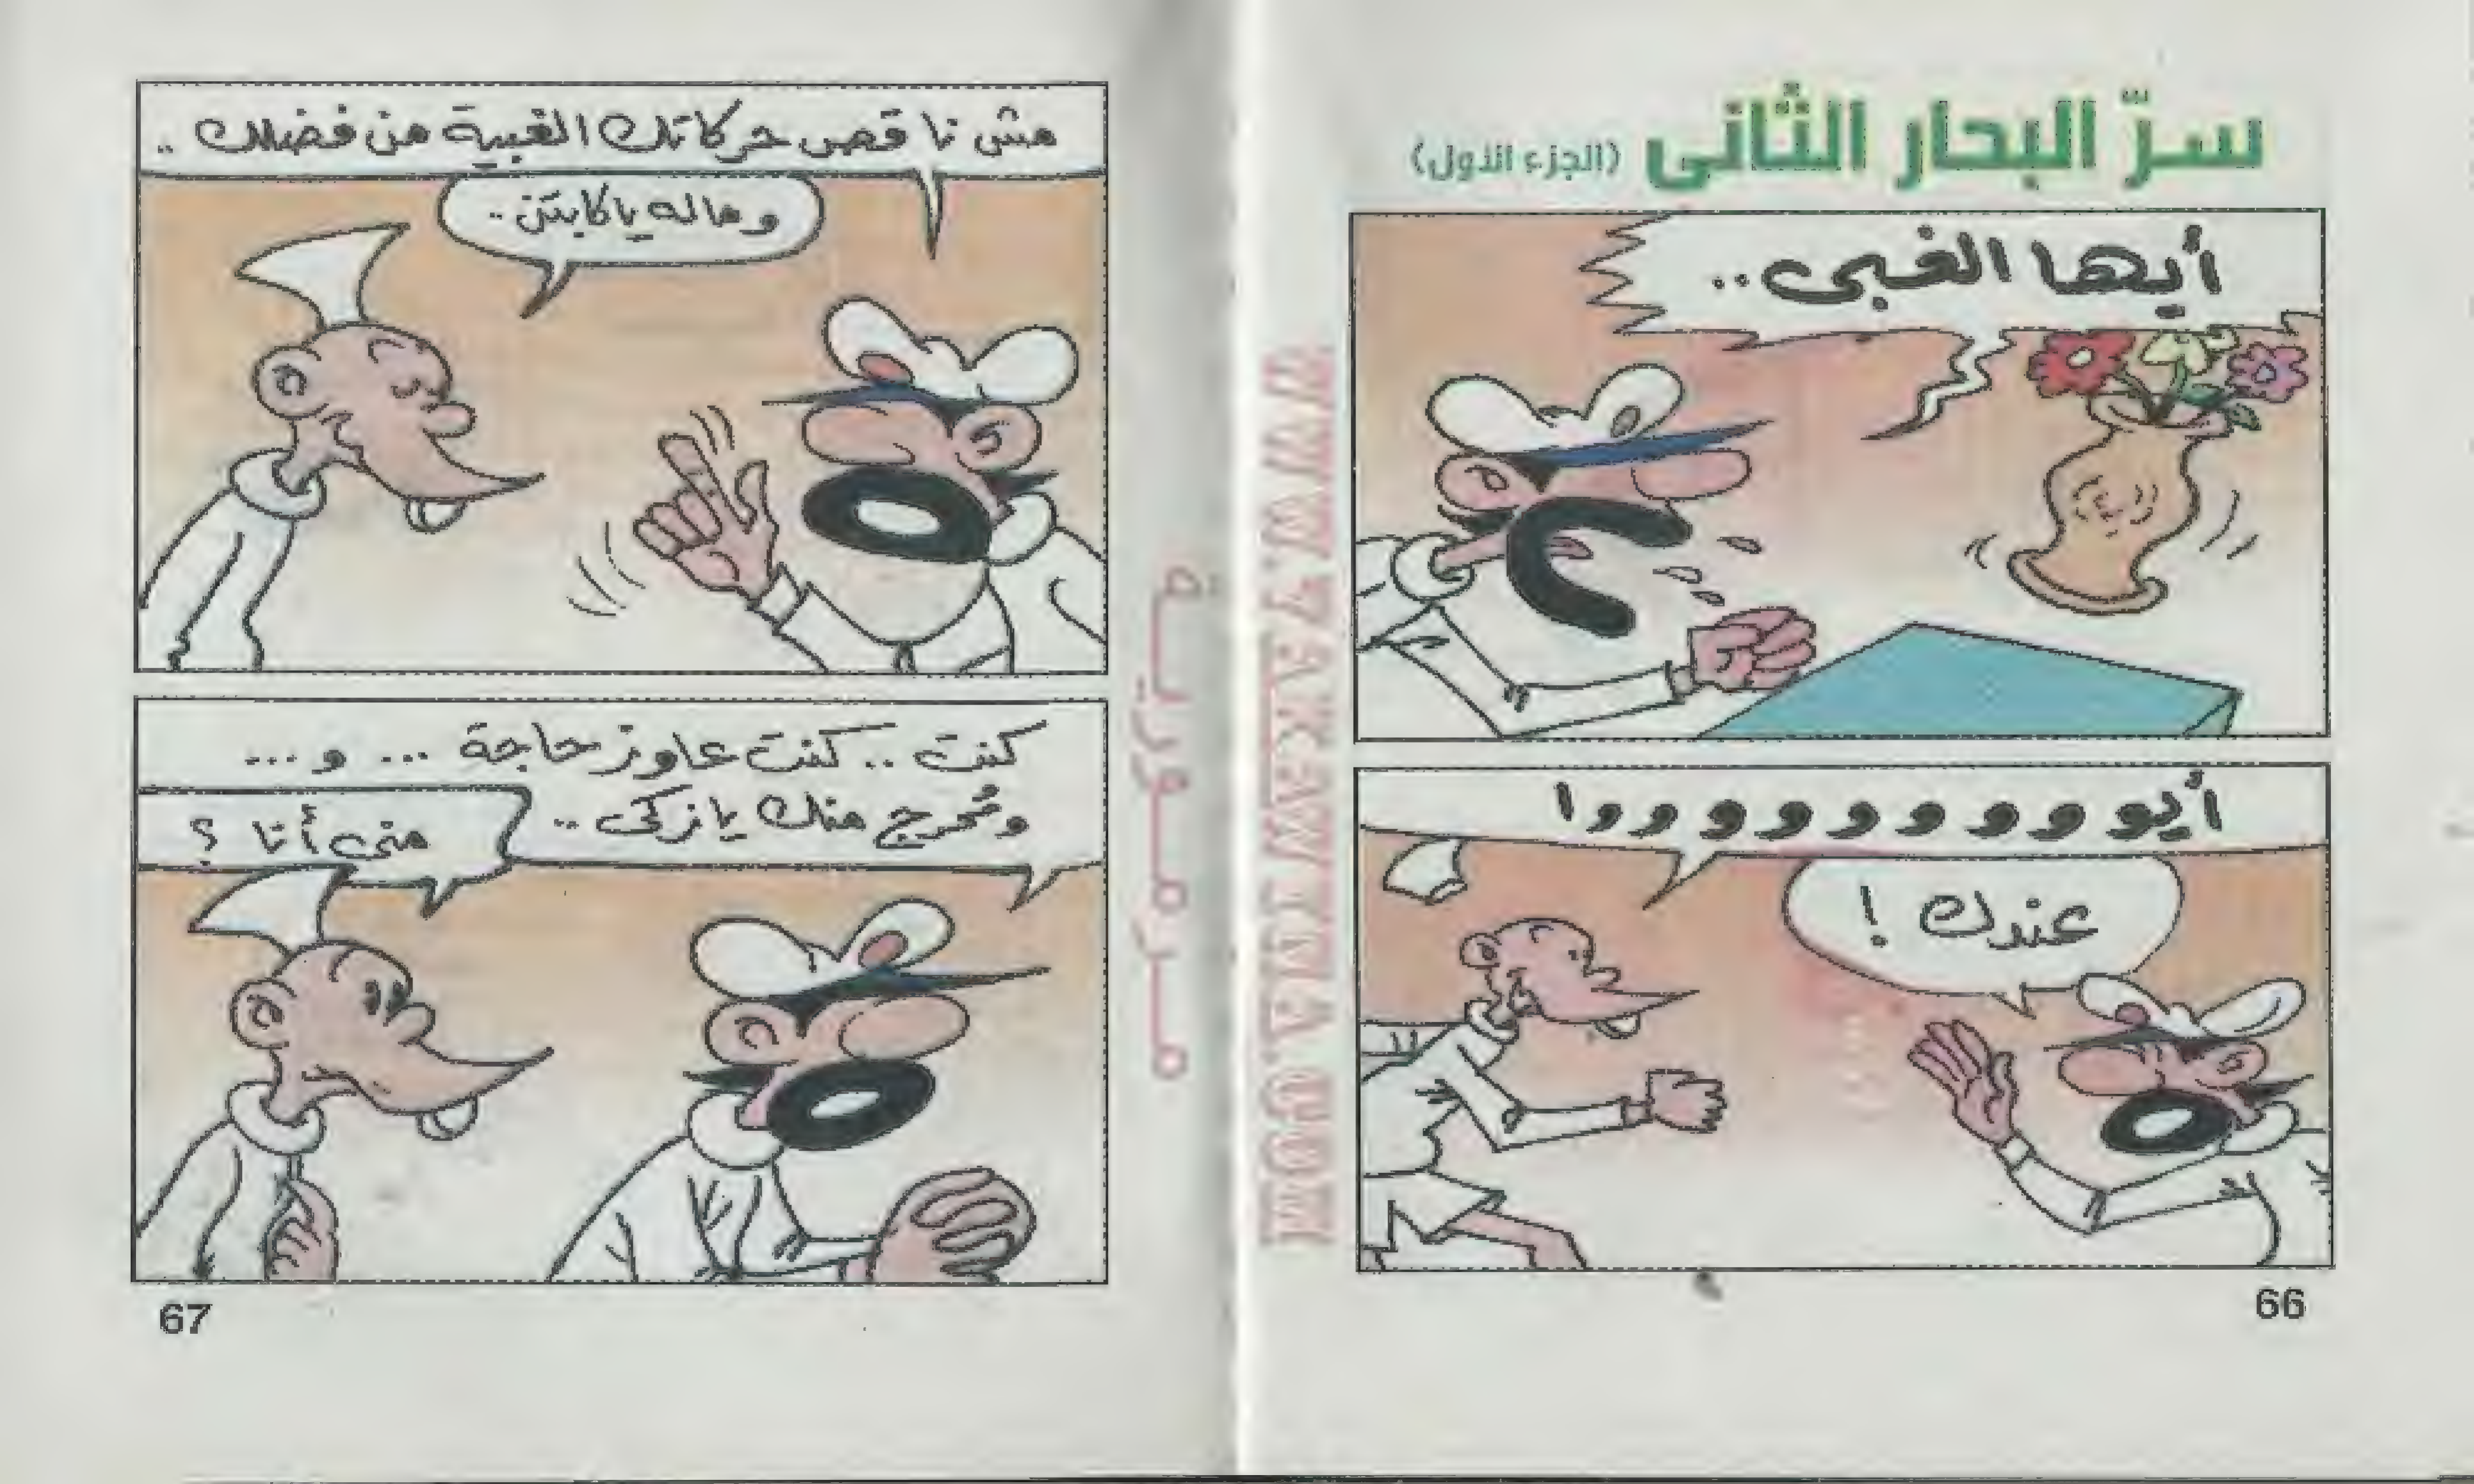 سرّ البحار الثانى (الجزء الأول)
أيها الغبى..
أيوووووووووا
عندك !
66
مش ناقص حركاتك الغبية من فضلك ..
وماله يا كابتن ..
كنت .. كنت عاوز حاجة ... و ...
ومُحرج منك يا زكى ..
منى أنا ؟
67